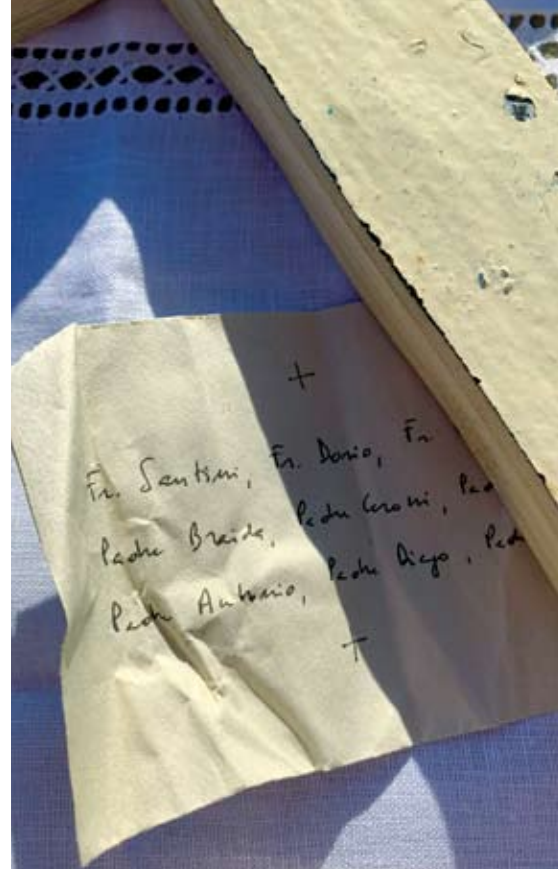 +
Fr. Santini, Fr. Dario, Fr.
Padre Braida, Padre Cerotti, Pad
Padre Antonio, Padre Diego, Pad
T